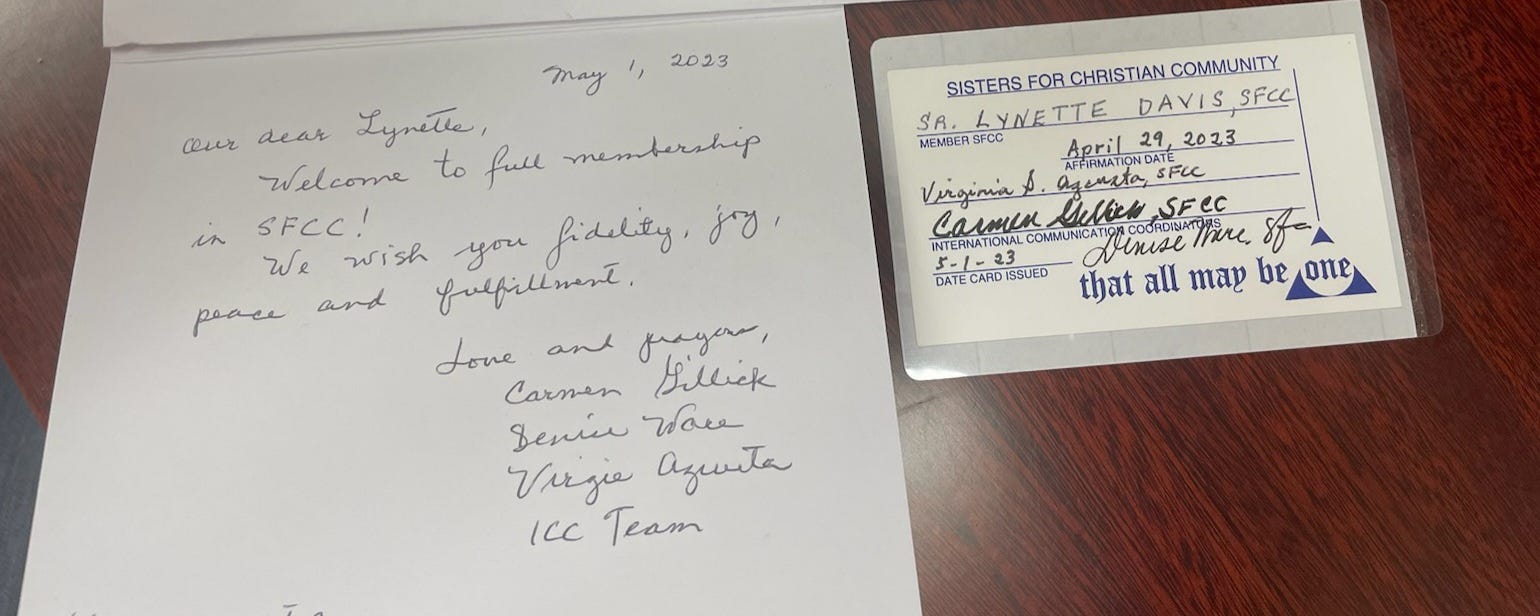 May 1, 2023
Our dear Lynette,
Welcome to full membership
in SFCC!
We wish you fidelity, joy,
peace and fulfillment.
Love and prayers,
Carmen Gillick
Denise Ware
Virgie Azusta
ICC Team
SISTERS FOR CHRISTIAN COMMUNITY
SR. LYNETTE DAVIS, SFCC
MEMBER SFCC
April 29, 2023
AFFIRMATION DATE
Virginia S. Azusta, SFCC
Carmen Gillick, SFCC
INTERNATIONAL COMMUNICATION COORDINATORS
Denise Ware
5-1-23
DATE CARD ISSUED
that all may be one